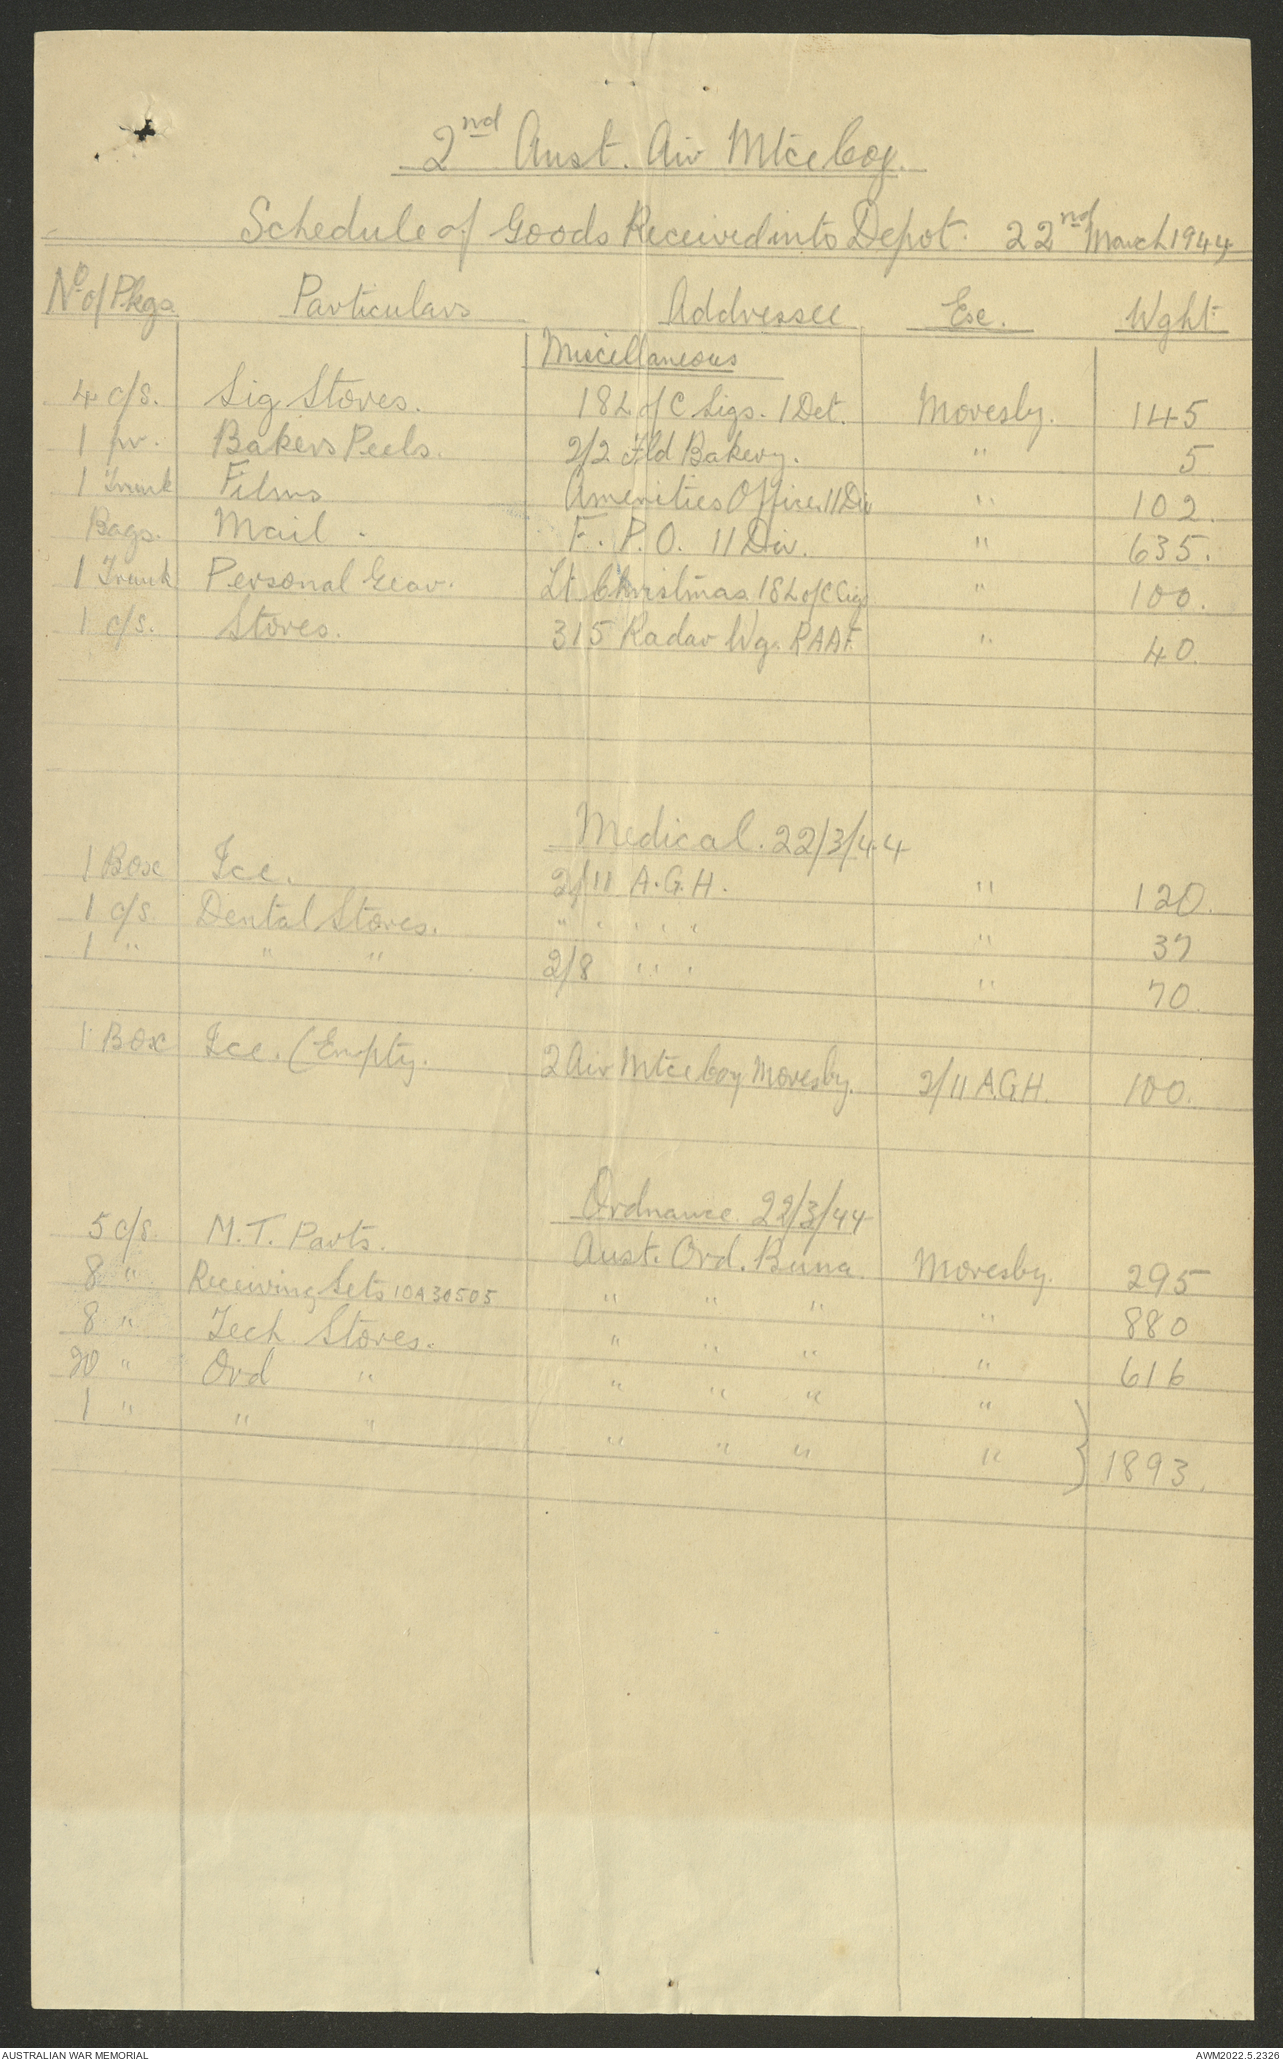 2nd Aust. Air Mtce Coy.
Schedule of Goods Received into Depot. 22nd March 1944
No of Pkgs. Particulars Addressee Ex. Wght.
Miscellaneous
4 c/s. Sig Stores. 18 L of C Sigs. 1 Det. Moresby. 145
1 pr. Bakers Peels. 2/2 Fld Bakery. " 5
1 Trunk Films Amenities Officer. 11 Div " 102.
Bags. Mail. F. P. O. 11 Div. " 635.
1 Trunk Personal Gear. Lt Christmas 18 L of C Sigs " 100.
1 c/s. Stores. 315 Radar Wg. RAAF. " 40.
Medical. 22/3/44
1 Box Ice. 2/11 A.G.H. " 120.
1 c/s Dental Stores. " " " " " " 37
1 " " " 2/8 " " " 70.
1 Box Ice. (Empty. 2 Air Mtce Coy Moresby. 2/11 A.G.H. 100.
Ordnance. 22/3/44
5 c/s. M.T. Parts. Aust. Ord. Buna. Moresby. 295
8 " Receiving Sets 10A30505 " " " " 880
8 " Tech Stores. " " " " 616
20 " Ord " " " " "
1 " " " " " " " } 1893.
AUSTRALIAN WAR MEMORIAL AWM2022.5.2326